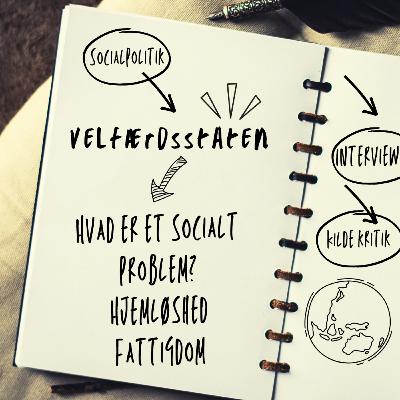 SOCIALPOLITIK
VELFÆRDSSTATEN
HVAD ER ET SOCIALT
PROBLEM?
HJEMLØSHED
FATTIGDOM
INTERVIEW
KILDE KRITIK